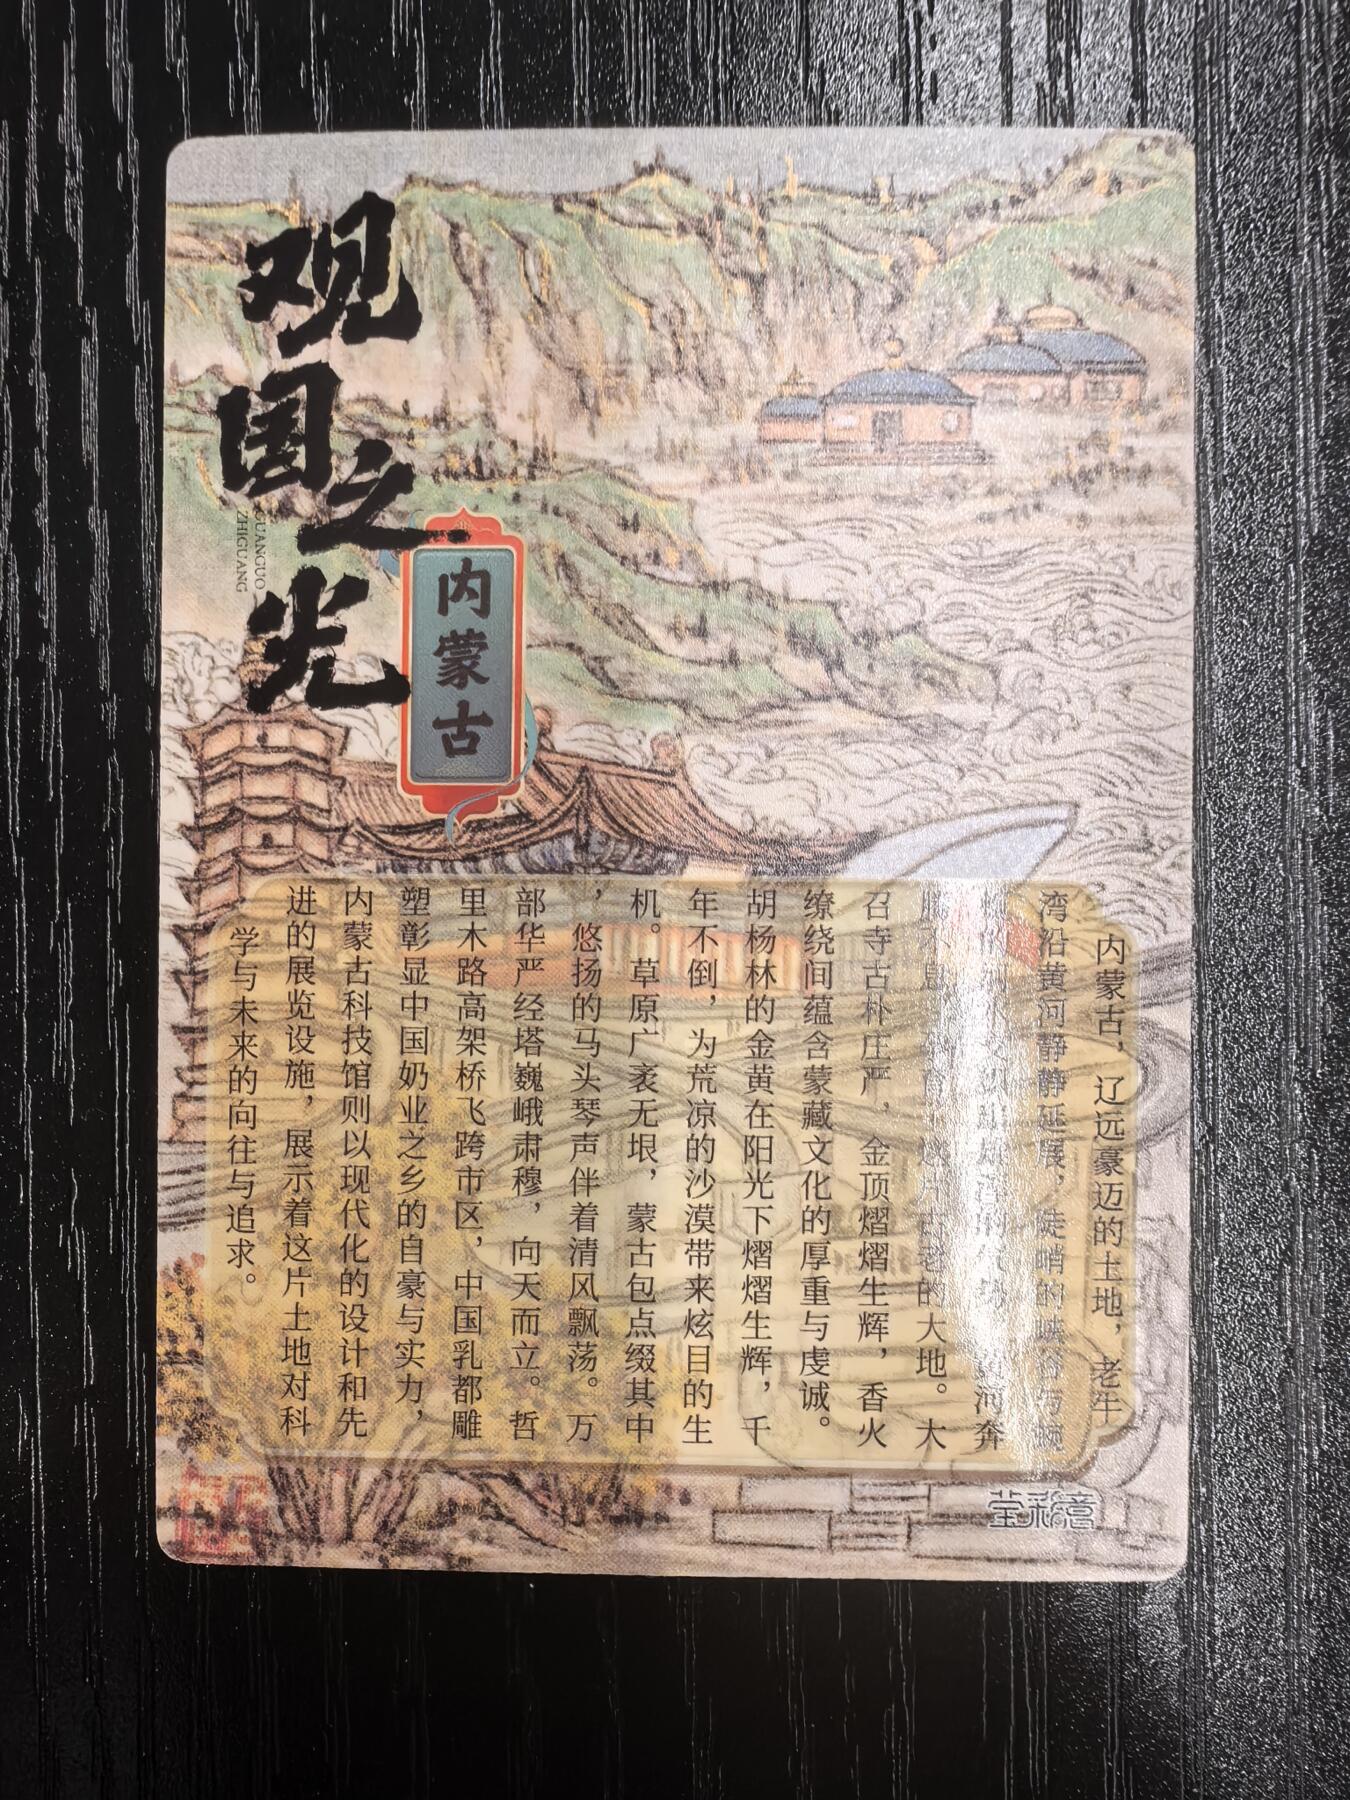 观国之光
GUANGUO
ZHIGUANG
内蒙古
内蒙古，辽远豪迈的土地，老牛
湾沿黄河静静延展，陡峭的峡谷与蜿
河奔
腾不息 的大地。大
召寺古朴庄严，金顶熠熠生辉，香火
缭绕间蕴含蒙藏文化的厚重与虔诚。
胡杨林的金黄在阳光下熠熠生辉，千
年不倒，为荒凉的沙漠带来炫目的生
机。草原广袤无垠，蒙古包点缀其中
，悠扬的马头琴声伴着清风飘荡。万
部华严经塔巍峨肃穆，向天而立。哲
里木路高架桥飞跨市区，中国乳都雕
塑彰显中国奶业之乡的自豪与实力，
内蒙古科技馆则以现代化的设计和先
进的展览设施，展示着这片土地对科
学与未来的向往与追求。